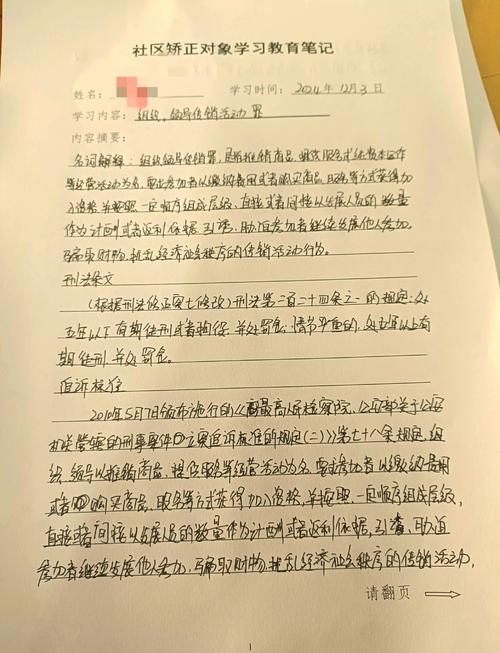 社区矫正对象学习教育笔记
姓名： 学习时间：2024年12月3日
学习内容：组织、领导传销活动罪
内容摘要：
名词解释：组织领导传销罪，是指推销商品、提供服务或资本运作
等经营活动为名，要求参加者以缴纳费用或者购买商品、服务等方式获得加
入资格，并按照一定顺序组成层级，直接或者间接以发展人员的数量
作为计酬或者返利依据，引诱、胁迫参加者继续发展他人参加，
骗取财物，扰乱经济社会秩序的传销活动行为。
刑法条文
（根据刑法修正案七修改）刑法第二百二十四条之一的规定：处
五年以下有期徒刑或者拘役，并处罚金；情节严重的，处五年以上有
期徒刑，并处罚金。
追诉标准
2010年5月7日颁布施行的《最高人民检察院、公安部关于公安
机关管辖的刑事案件立案追诉标准的规定（二）》第七十八条规定，组
织、领导以推销商品、提供服务等经营活动为名，要求参加者以缴纳费用
或者购买商品、服务等方式获得加入资格，并按照一定顺序组成层级，
直接或者间接以发展人员的数量作为计酬或者返利依据，引诱、胁迫
参加者继续发展他人参加，骗取财物，扰乱经济社会秩序的传销活动，
请翻页
1